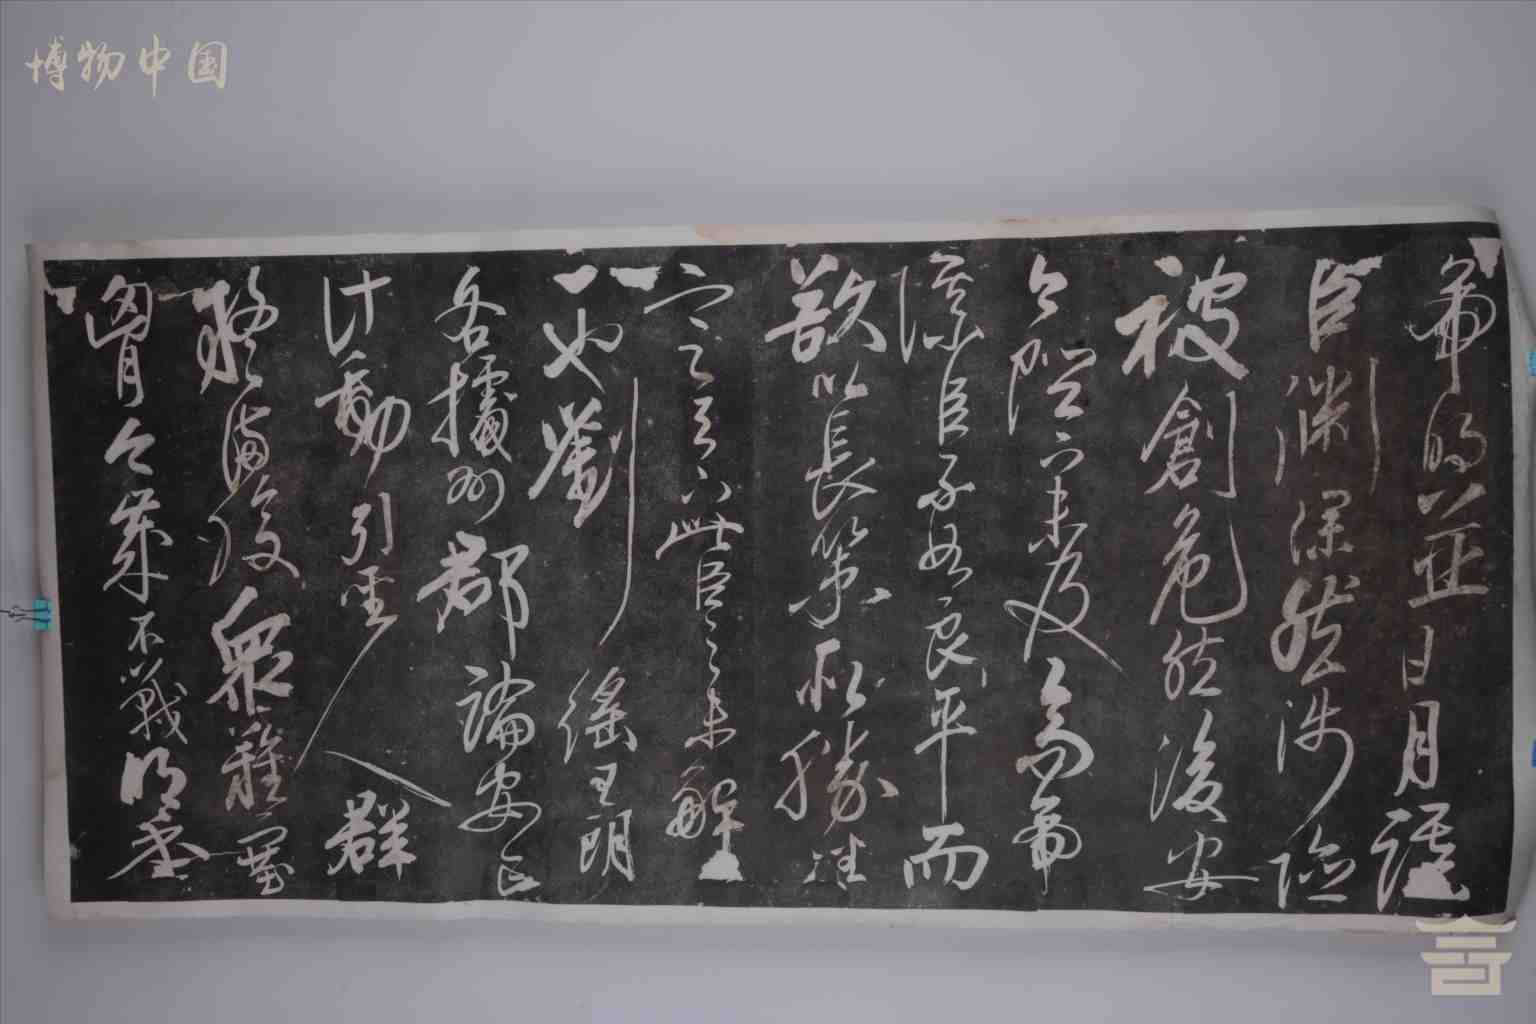 博物中国
帝明並日月謀
臣淵深然涉險
被創危然後安
今陛下未及高帝
謀臣不如良平而
欲以長策取勝坐
定天下此臣之未解
一也劉繇王朗
各據州郡論安言
計動引聖人群
疑滿腹眾難塞
胸今歲不戰明年